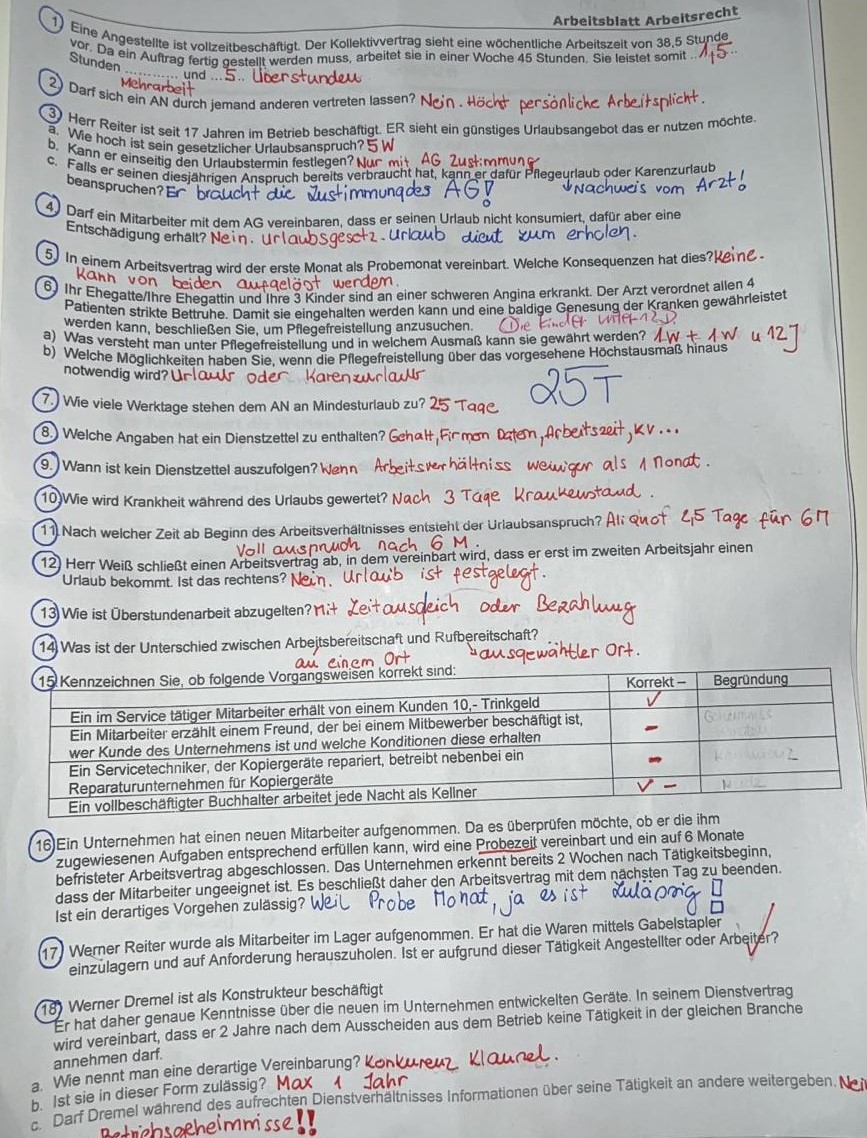 Arbeitsblatt Arbeitsrecht
1 Eine Angestellte ist vollzeitbeschäftigt. Der Kollektivvertrag sieht eine wöchentliche Arbeitszeit von 38,5 Stunde
vor. Da ein Auftrag fertig gestellt werden muss, arbeitet sie in einer Woche 45 Stunden. Sie leistet somit ..1,5..
Stunden ............ und ...5.. Überstunden
Mehrarbeit
2 Darf sich ein AN durch jemand anderen vertreten lassen? Nein. Höchst persönliche Arbeitsplicht.
3 Herr Reiter ist seit 17 Jahren im Betrieb beschäftigt. ER sieht ein günstiges Urlaubsangebot das er nutzen möchte.
a. Wie hoch ist sein gesetzlicher Urlaubsanspruch? 5 W
b. Kann er einseitig den Urlaubstermin festlegen? Nur mit AG Zustimmung
c. Falls er seinen diesjährigen Anspruch bereits verbraucht hat, kann er dafür Pflegeurlaub oder Karenzurlaub
beanspruchen? Er braucht die Zustimmung des AG! ↓Nachweis vom Arzt!
4 Darf ein Mitarbeiter mit dem AG vereinbaren, dass er seinen Urlaub nicht konsumiert, dafür aber eine
Entschädigung erhält? Nein. Urlaubsgesetz. Urlaub dient zum erholen.
5 In einem Arbeitsvertrag wird der erste Monat als Probemonat vereinbart. Welche Konsequenzen hat dies? Keine.
Kann von beiden aufgelöst werden.
6 Ihr Ehegatte/Ihre Ehegattin und Ihre 3 Kinder sind an einer schweren Angina erkrankt. Der Arzt verordnet allen 4
Patienten strikte Bettruhe. Damit sie eingehalten werden kann und eine baldige Genesung der Kranken gewährleistet
werden kann, beschließen Sie, um Pflegefreistellung anzusuchen. Die Kinder unter 12J.
a) Was versteht man unter Pflegefreistellung und in welchem Ausmaß kann sie gewährt werden? 1W + 1W u 12J
b) Welche Möglichkeiten haben Sie, wenn die Pflegefreistellung über das vorgesehene Höchstausmaß hinaus
notwendig wird? Urlaub oder Karenzurlaub
7. Wie viele Werktage stehen dem AN an Mindesturlaub zu? 25 Tage 25 T
8. Welche Angaben hat ein Dienstzettel zu enthalten? Gehalt, Firmen Daten, Arbeitszeit, KV...
9. Wann ist kein Dienstzettel auszufolgen? Wenn Arbeitsverhältniss weniger als 1 Monat.
10 Wie wird Krankheit während des Urlaubs gewertet? Nach 3 Tage Krankenstand.
11 Nach welcher Zeit ab Beginn des Arbeitsverhältnisses entsteht der Urlaubsanspruch? Aliquot 2,5 Tage für 6M
Voll anspruch nach 6 M.
12 Herr Weiß schließt einen Arbeitsvertrag ab, in dem vereinbart wird, dass er erst im zweiten Arbeitsjahr einen
Urlaub bekommt. Ist das rechtens? Nein. Urlaub ist festgelegt.
13 Wie ist Überstundenarbeit abzugelten? Mit Zeitausgleich oder Bezahlung
14 Was ist der Unterschied zwischen Arbeitsbereitschaft und Rufbereitschaft?
an einem Ort ↳ausgewähtler Ort.
15 Kennzeichnen Sie, ob folgende Vorgangsweisen korrekt sind: Korrekt – Begründung
Ein im Service tätiger Mitarbeiter erhält von einem Kunden 10,- Trinkgeld ✓
Ein Mitarbeiter erzählt einem Freund, der bei einem Mitbewerber beschäftigt ist,
wer Kunde des Unternehmens ist und welche Konditionen diese erhalten –
Ein Servicetechniker, der Kopiergeräte repariert, betreibt nebenbei ein
Reparaturunternehmen für Kopiergeräte –
Ein vollbeschäftigter Buchhalter arbeitet jede Nacht als Kellner ✓ –
16 Ein Unternehmen hat einen neuen Mitarbeiter aufgenommen. Da es überprüfen möchte, ob er die ihm
zugewiesenen Aufgaben entsprechend erfüllen kann, wird eine Probezeit vereinbart und ein auf 6 Monate
befristeter Arbeitsvertrag abgeschlossen. Das Unternehmen erkennt bereits 2 Wochen nach Tätigkeitsbeginn,
dass der Mitarbeiter ungeeignet ist. Es beschließt daher den Arbeitsvertrag mit dem nächsten Tag zu beenden.
Ist ein derartiges Vorgehen zulässig? Weil Probe Monat, ja es ist zulässig!
17 Werner Reiter wurde als Mitarbeiter im Lager aufgenommen. Er hat die Waren mittels Gabelstapler
einzulagern und auf Anforderung herauszuholen. Ist er aufgrund dieser Tätigkeit Angestellter oder Arbeiter?
18 Werner Dremel ist als Konstrukteur beschäftigt
Er hat daher genaue Kenntnisse über die neuen im Unternehmen entwickelten Geräte. In seinem Dienstvertrag
wird vereinbart, dass er 2 Jahre nach dem Ausscheiden aus dem Betrieb keine Tätigkeit in der gleichen Branche
annehmen darf.
a. Wie nennt man eine derartige Vereinbarung? Konkurenz Klausel.
b. Ist sie in dieser Form zulässig? Max 1 Jahr
c. Darf Dremel während des aufrechten Dienstverhältnisses Informationen über seine Tätigkeit an andere weitergeben. Nein
Betriebsgeheimnisse!!